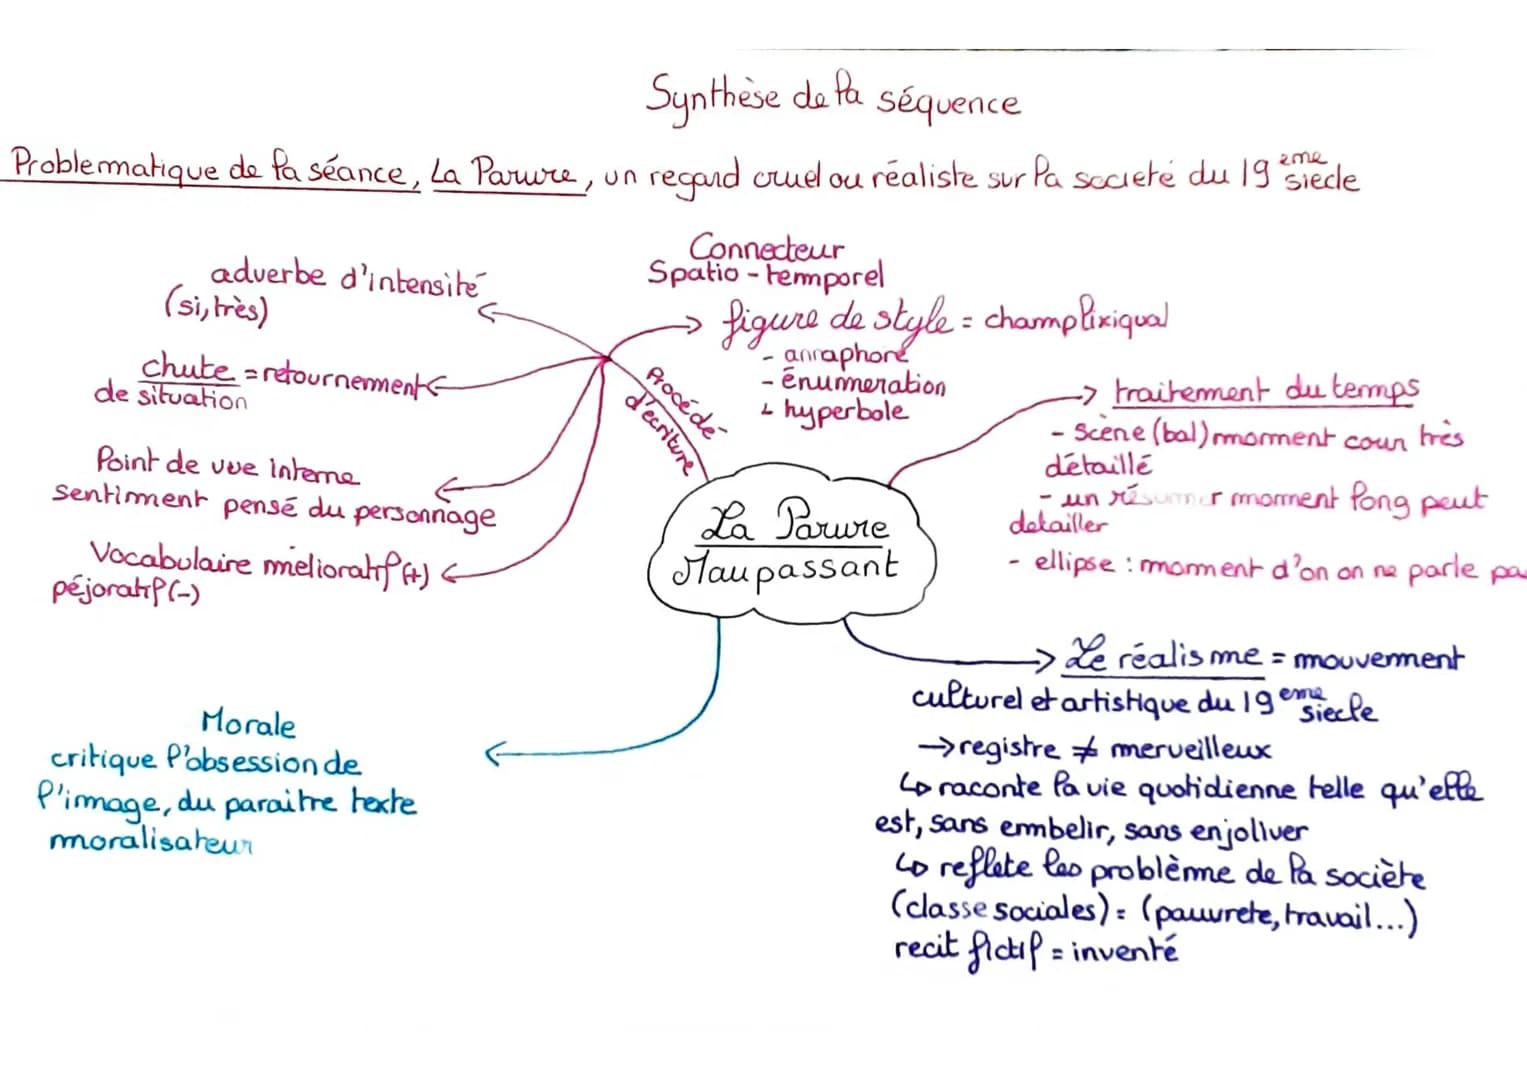 Synthèse de la séquence
Problematique de la séance, La Parure, un regard cruel ou réaliste sur la societé du 19 eme siecle
adverbe d'intensité
(si, très)
chute = retournement
de situation
Point de vue interne
sentiment pensé du personnage
Vocabulaire mélioratif (+)
péjoratif (-)
Procédé
d'écriture
Connecteur
Spatio-temporel
figure de style = champ lixiqual
- anaphore
- énumeration
↳ hyperbole
→ traitement du temps
- Scène (bal) moment cour très
détaillé
- un résumer moment long peut
detailler
- ellipse : moment d'on on ne parle pa
La Parure
Maupassant
Morale
critique l'obsession de
l'image, du paraitre texte
moralisateur
→ Le réalisme = mouvement
culturel et artistique du 19 eme siecle
→ registre ≠ merveilleux
↳ raconte la vie quotidienne telle qu'elle
est, sans embelir, sans enjoliver
↳ reflete les problème de la sociète
(classe sociales) = (pauvrete, travail...)
recit fictif = inventé